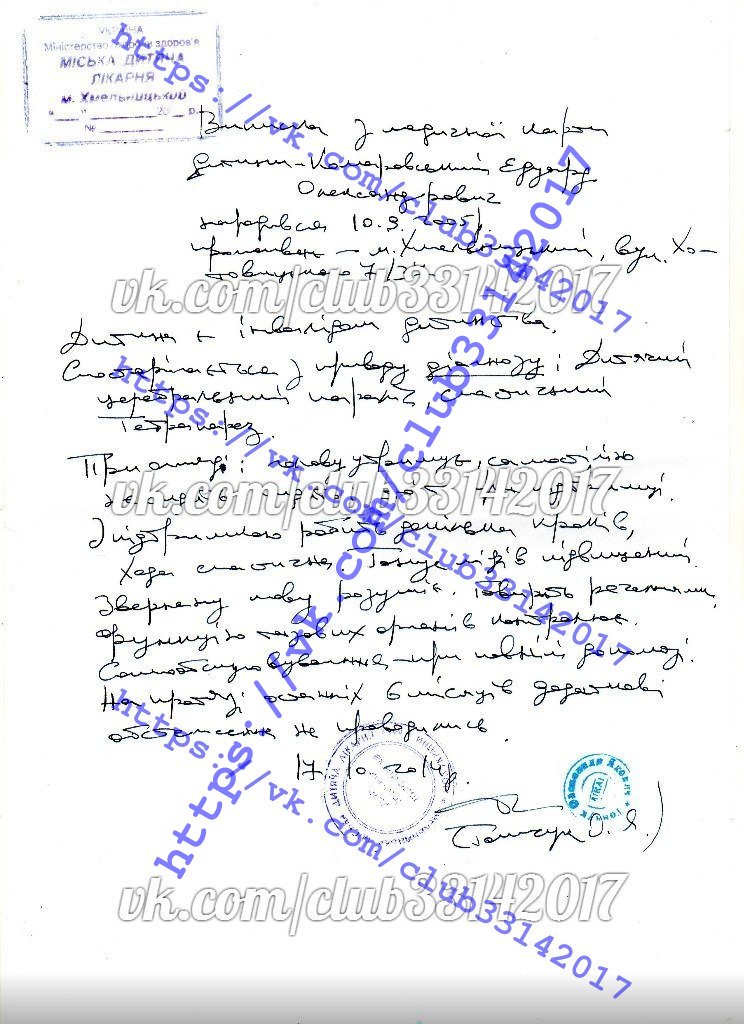 УКРАЇНА
Міністерство охорони здоров'я
МІСЬКА ДИТЯЧА
ЛІКАРНЯ
м. Хмельницький
"___" ________ 20__ р.
№ ________
Виписка з медичної карти
дитини - Комаровський Едуард
Олександрович
народився 10.9.2005р.
проживає - м. Хмельницький, вул. Хо-
Дитина є інвалідом дитинства.
Спостерігається з приводу діагнозу: Дитячий
церебральний параліч, спастичний
тетрапарез.
При огляді: голову утримує, самостійно
З підтримкою робить декілька кроків,
хода спастична. Тонус м'язів підвищений.
Звернену мову розуміє. Говорить реченнями,
функцію тазових органів контролює.
Самообслуговування - при повній допомозі.
На протязі останніх 6 місяців додаткові
обстеження не проводились.
17.10.2014р.
https://vk.com/club33142017
vk.com/club33142017
https://vk.com/club33142017
vk.com/club33142017
https://vk.com/club33142017
https://vk.com/club33142017
vk.com/club33142017